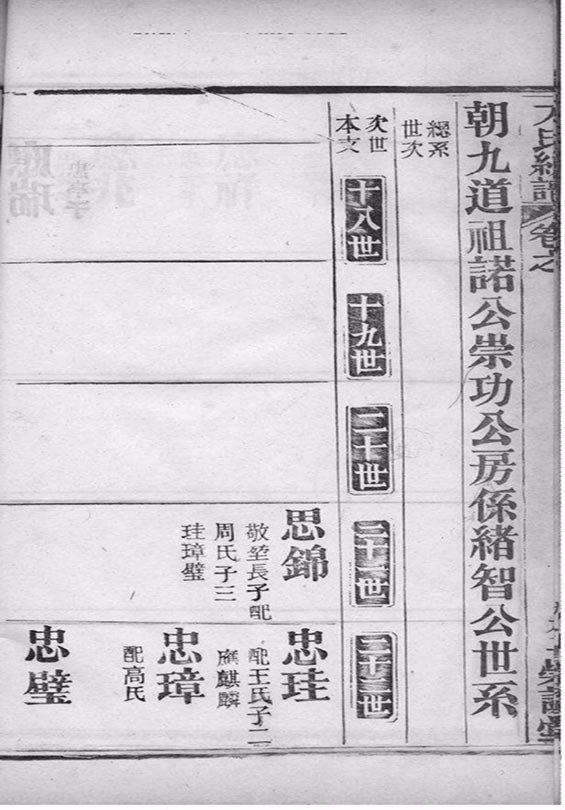 氏經譜
卷之
朝九道祖諾公崇功公房係緒智公世系
總系
世次
次世
本支
十八世
十九世
二十世
二十一世
二十二世
思錦
敬堃長子配
周氏子三
珪璋璧
忠珪
配王氏子二
應麒麟
忠璋
配高氏
忠璧